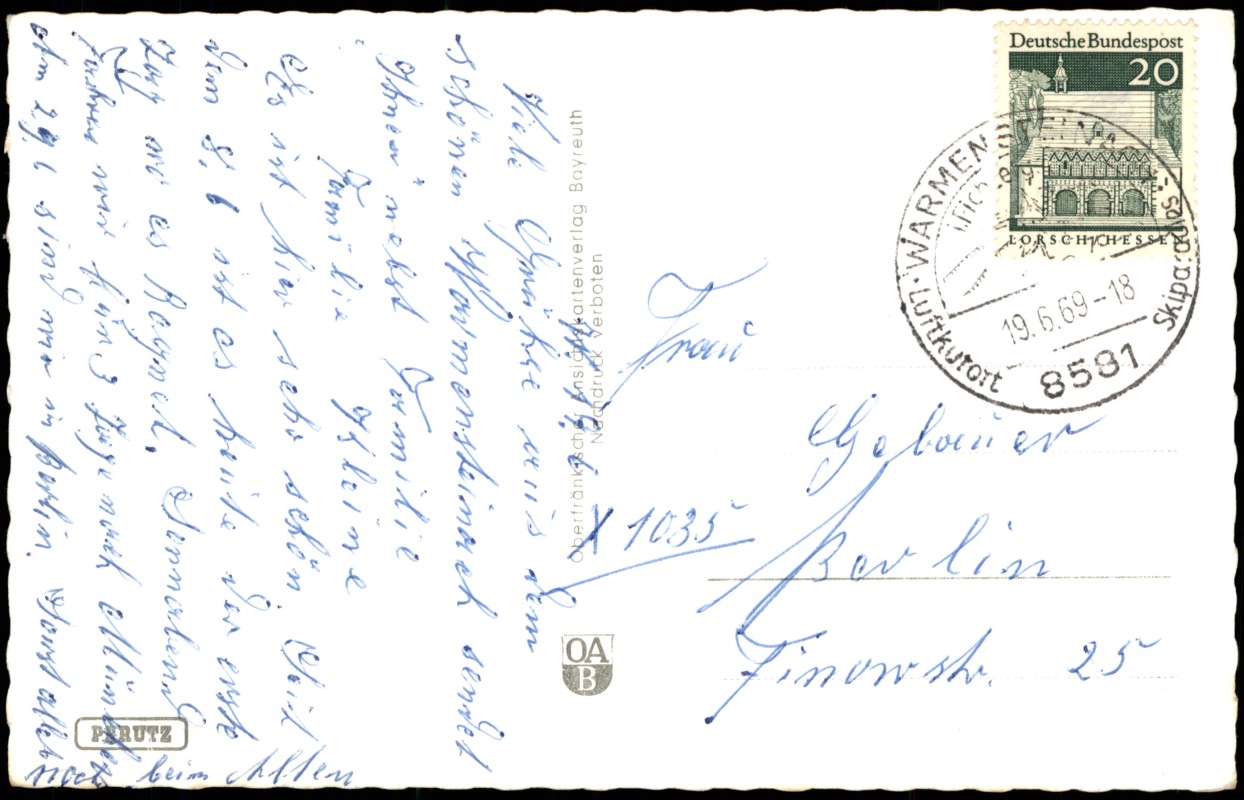 19.6.69.
Viele Grüße aus dem
schönen Warmensteinach sendet
Ihnen nebst Familie
Familie Kleine
Es ist hier sehr schön. Seit
dem 8.6 ist es heute der erste
Tag wo es Regnet. Sonnabend
fahren wir für 3 Tage nach München
Am 29.6 sind wir in Berlin. Sonst alles
noch beim Alten
PERUTZ
Oberfränkischer Ansichtskartenverlag Bayreuth
Nachdruck verboten
OA
B
Deutsche Bundespost
20
LORSCH/HESSEN
WARMENSTEINACH
19.6.69-18
Luftkurort
8581
Skiparadies
Frau
Gebauer
X 1035
Berlin
Finowstr. 25